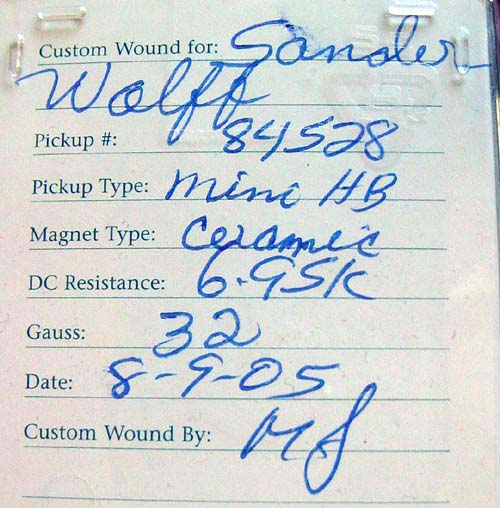 Custom Wound for: Sander
Wolff
Pickup #: 84528
Pickup Type: Mini HB
Magnet Type: Ceramic
DC Resistance: 6.95K
Gauss: 32
Date: 8-9-05
Custom Wound By: MJ